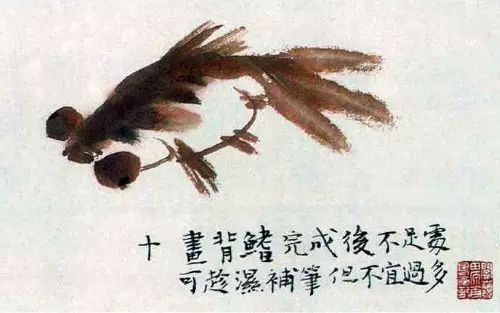 十 畫背鰭完成後不足處
可趁濕補筆但不宜過多